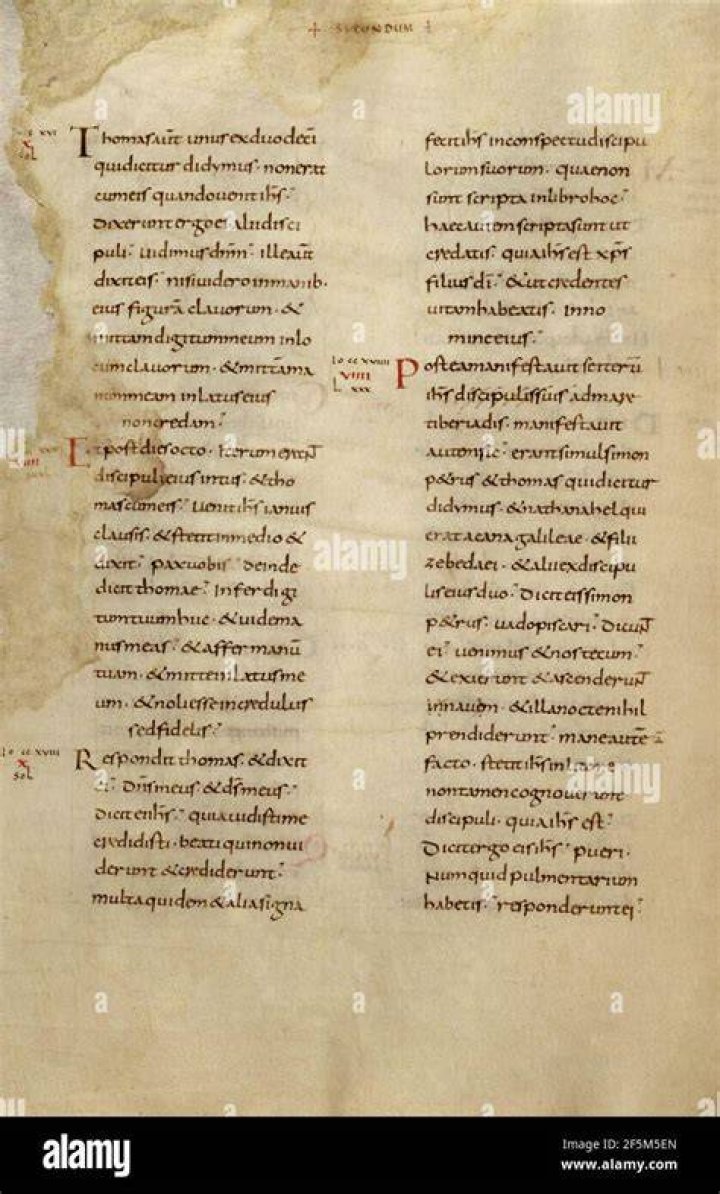 + SECUNDUM +
Thomas aut unus ex duodeci
qui dicitur didymus· non erat
cum eis quando uenit ihs·
Dixerunt ergo ei alii disci
puli· Uidimus dnm· ille aut
dixit eis· nisi uidero in manib·
eius figurā clauorum· &
mittam digitum meum in lo
cum clauorum· & mittā ma
num meam in latus eius
non credam·
Et post dies octo· Iterum erant
discipuli eius intus· & tho
mas cum eis· Uenit ihs ianuis
clausis· & stetit in medio &
dixit· pax uobis· deinde
dicit thomae· Infer digi
tum tuum huc· & uide ma
nus meas· & affer manū
tuam· & mitte in latus me
um· & noli esse incredulus
sed fidelis·
lo cc xviii
x
sol
Respondit thomas· & dixit
ei· Dns meus & ds meus·
Dicit ei ihs· quia uidisti me
credidisti· beati qui non ui
derunt & crediderunt·
multa quidem & alia signa
fecit ihs in conspectu discipu
lorum suorum· quae non
sunt scripta in libro hoc·
haec autem scripta sunt ut
credatis· quia ihs est xps
filius di· & ut credentes
uitam habeatis· In no
mine eius·
lo cc xviiii
viiii
L xxx
Postea manifestauit se iterū
ihs discipulis suis ad mare
tiberiadis· manifestauit
autem sic· erant simul simon
p&rus & thomas qui dicitur
didymus· & nathanahel qui
erat a cana galileae· & filii
zebedaei· & alii ex discipu
lis eius duo· Dicit eis simon
p&rus· uado piscari· Dicunt
ei· uenimus & nos tecum·
& exierunt & ascenderunt
in nauem· & illa nocte nihil
prendiderunt· mane autē
facto· stetit ihs in litore
non tamen cognouerunt
discipuli· quia ihs est·
Dicit ergo eis ihs· pueri·
Numquid pulmentarium
habetis· responderunt ei·
alamy
Image ID: 2F5M5EN
www.alamy.com